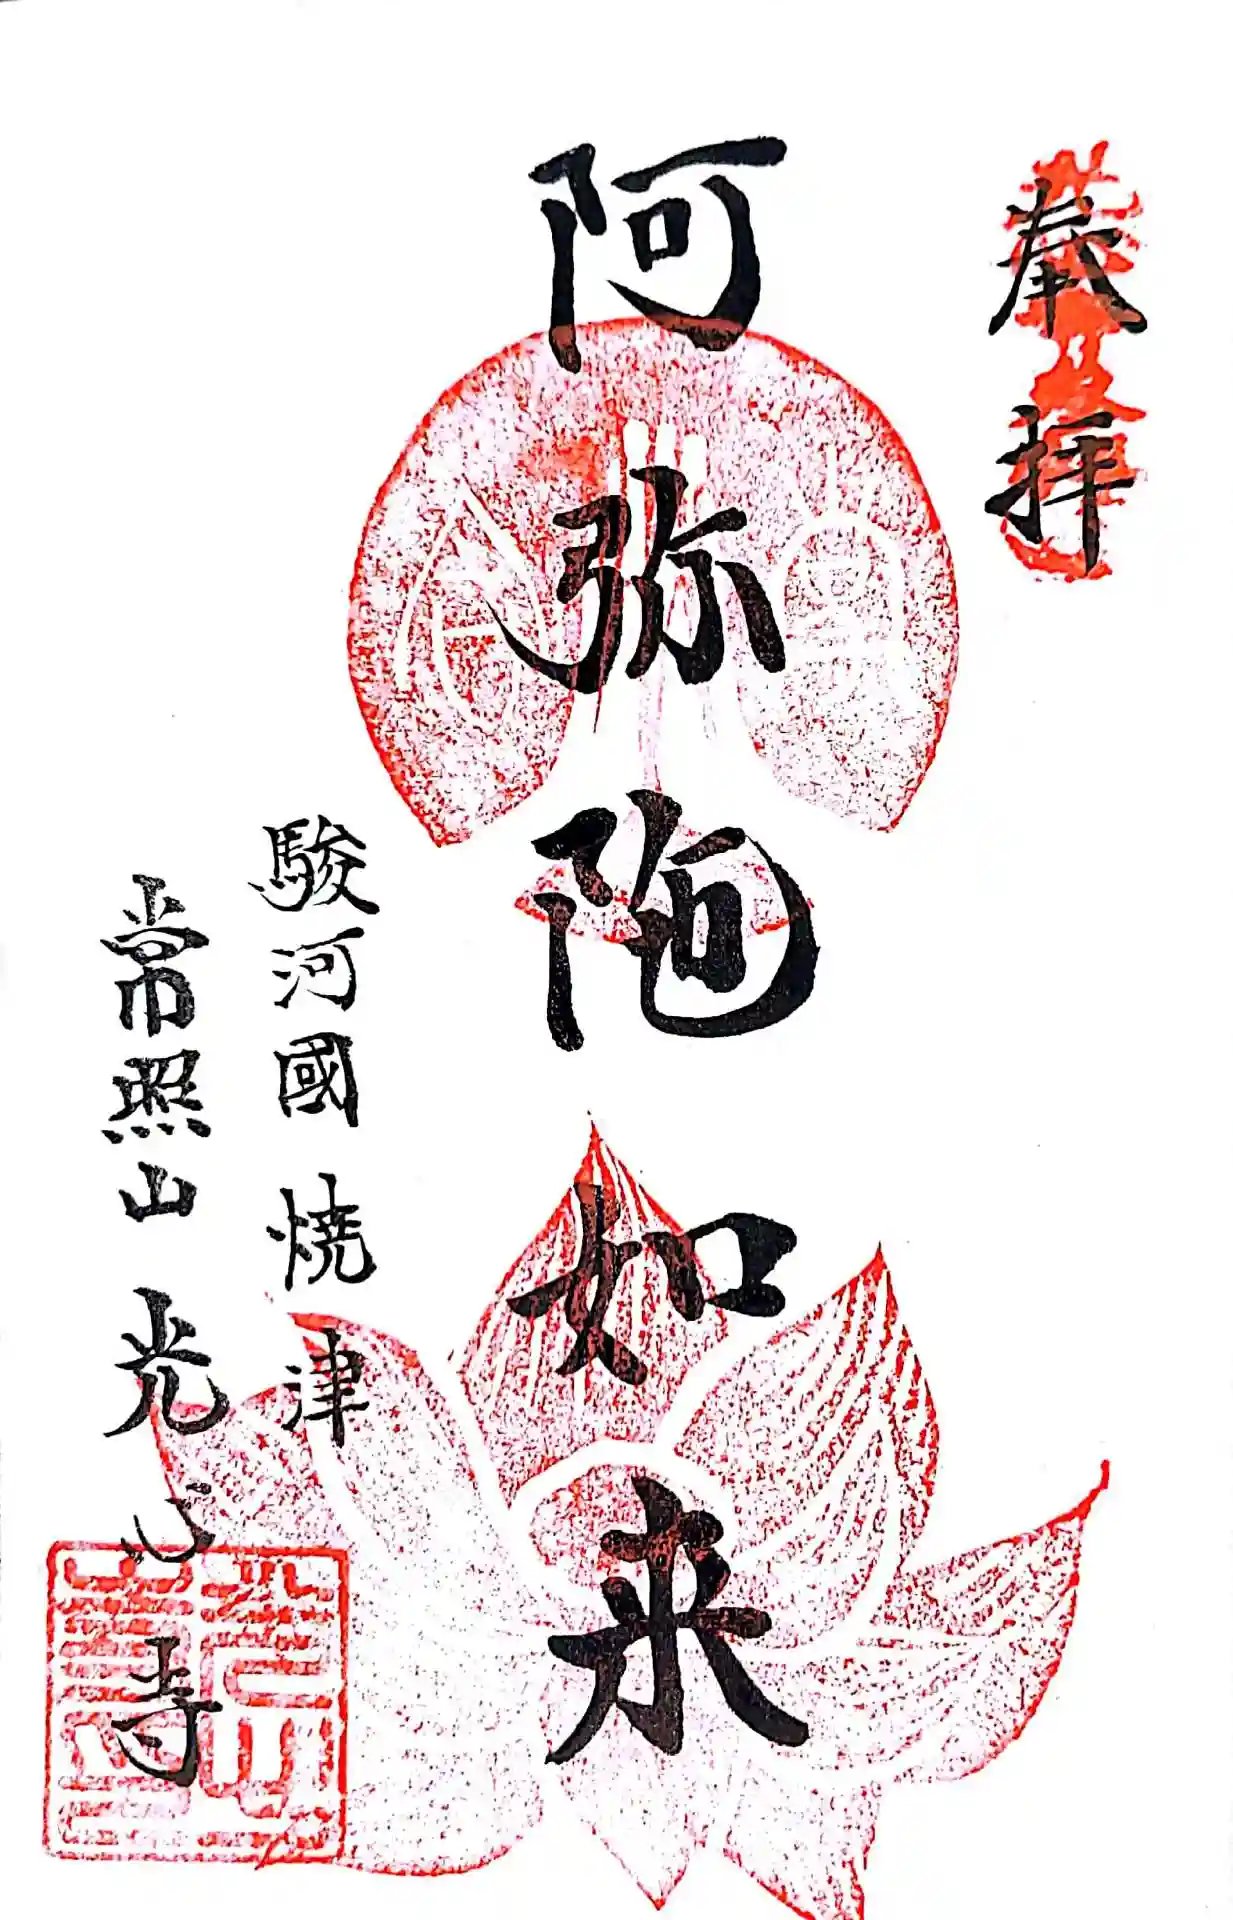 奉拝
阿弥陀如来
駿河國 焼津
常照山 光心寺